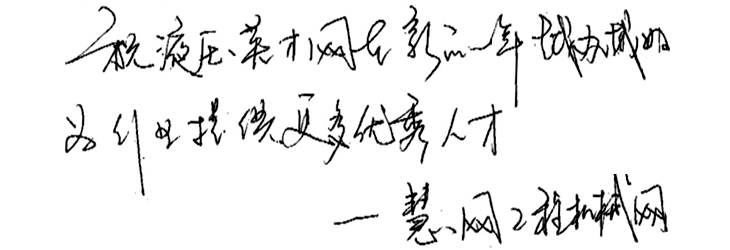 祝液压英才网在新的一年越办越好
为行业提供更多优秀人才
一慧网工程机械网